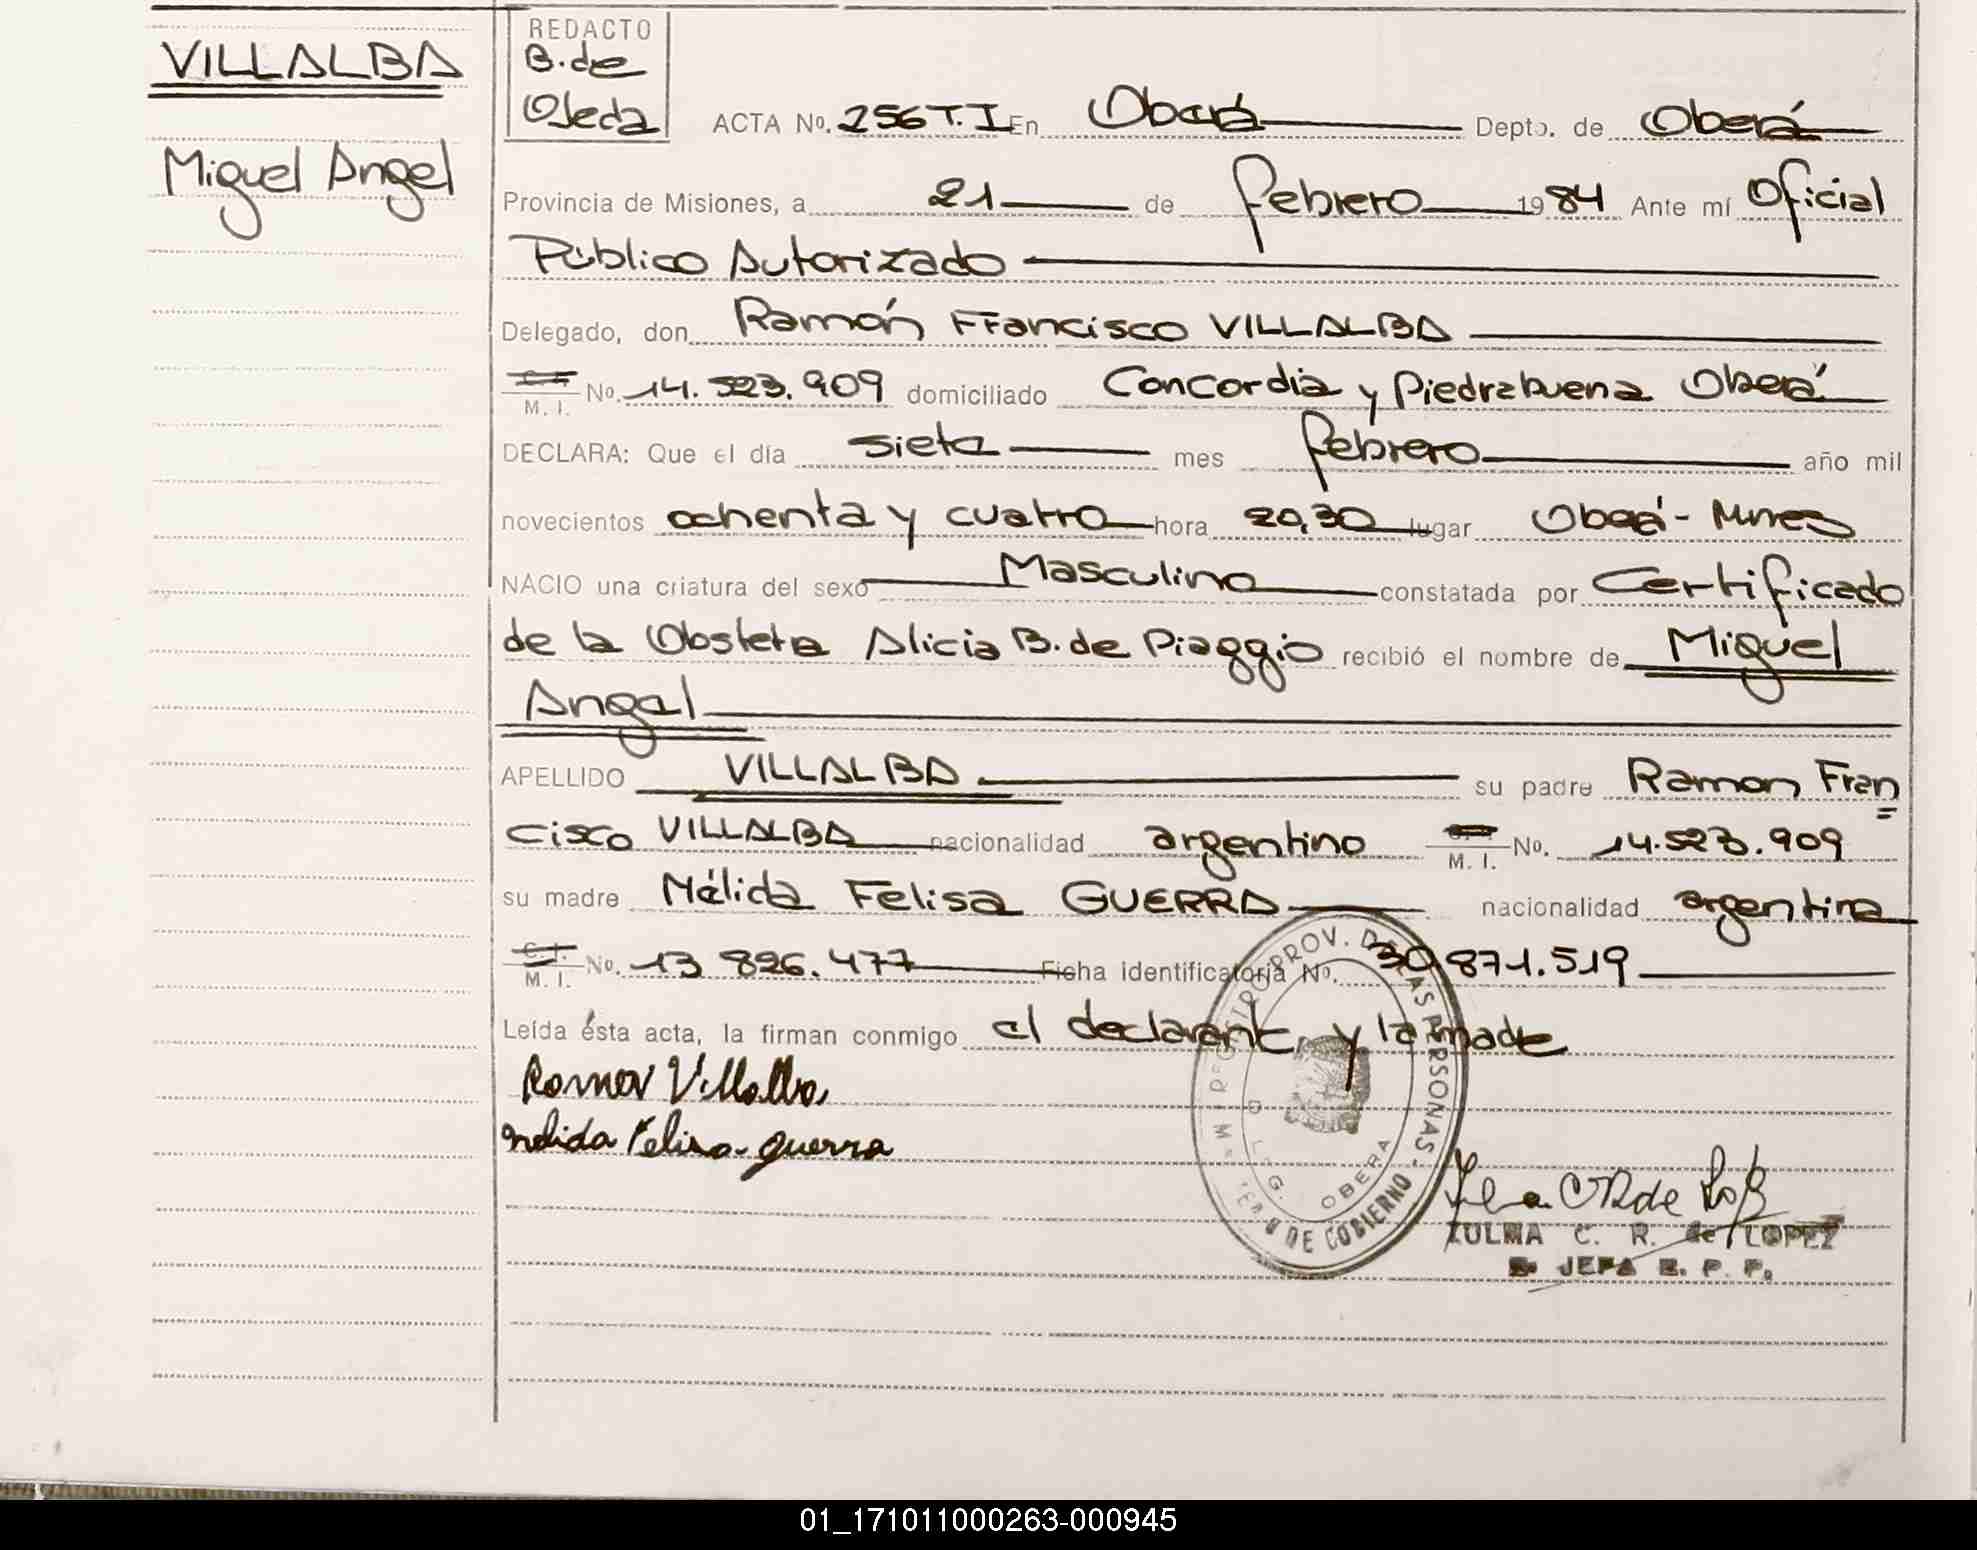 VILLALBA
Miguel Angel
REDACTO
B. de
Ojeda
ACTA No. 256 T. I En Oberá Depto. de Oberá
Provincia de Misiones, a 21 de febrero 1984 Ante mí Oficial
Público Autorizado
Delegado, don Ramón Francisco VILLALBA
C. I.
M. I. No. 14.523.909 domiciliado Concordia y Piedrabuena Oberá
DECLARA: Que el día siete mes febrero año mil
novecientos ochenta y cuatro hora 20,30 lugar Oberá - Mnes
NACIO una criatura del sexo Masculino constatada por Certificado
de la Obstetra Alicia B. de Piaggio recibió el nombre de Miguel
Angel
APELLIDO VILLALBA su padre Ramon Fran
cisco VILLALBA nacionalidad argentino M. I. No. 14.523.909
su madre Nélida Felisa GUERRA nacionalidad argentina
C. I.
M. I. No. 13 826.477 Ficha identificatoria No. 30.871.519
Leída ésta acta, la firman conmigo el declarante y la madre
Ramon Villalba
Nelida Felisa Guerra
REGISTRO PROV. DE LAS PERSONAS
DE GOBIERNO
OBERA
ZULMA C. R. de LOPEZ
JEFA R. P. P.
01_171011000263-000945